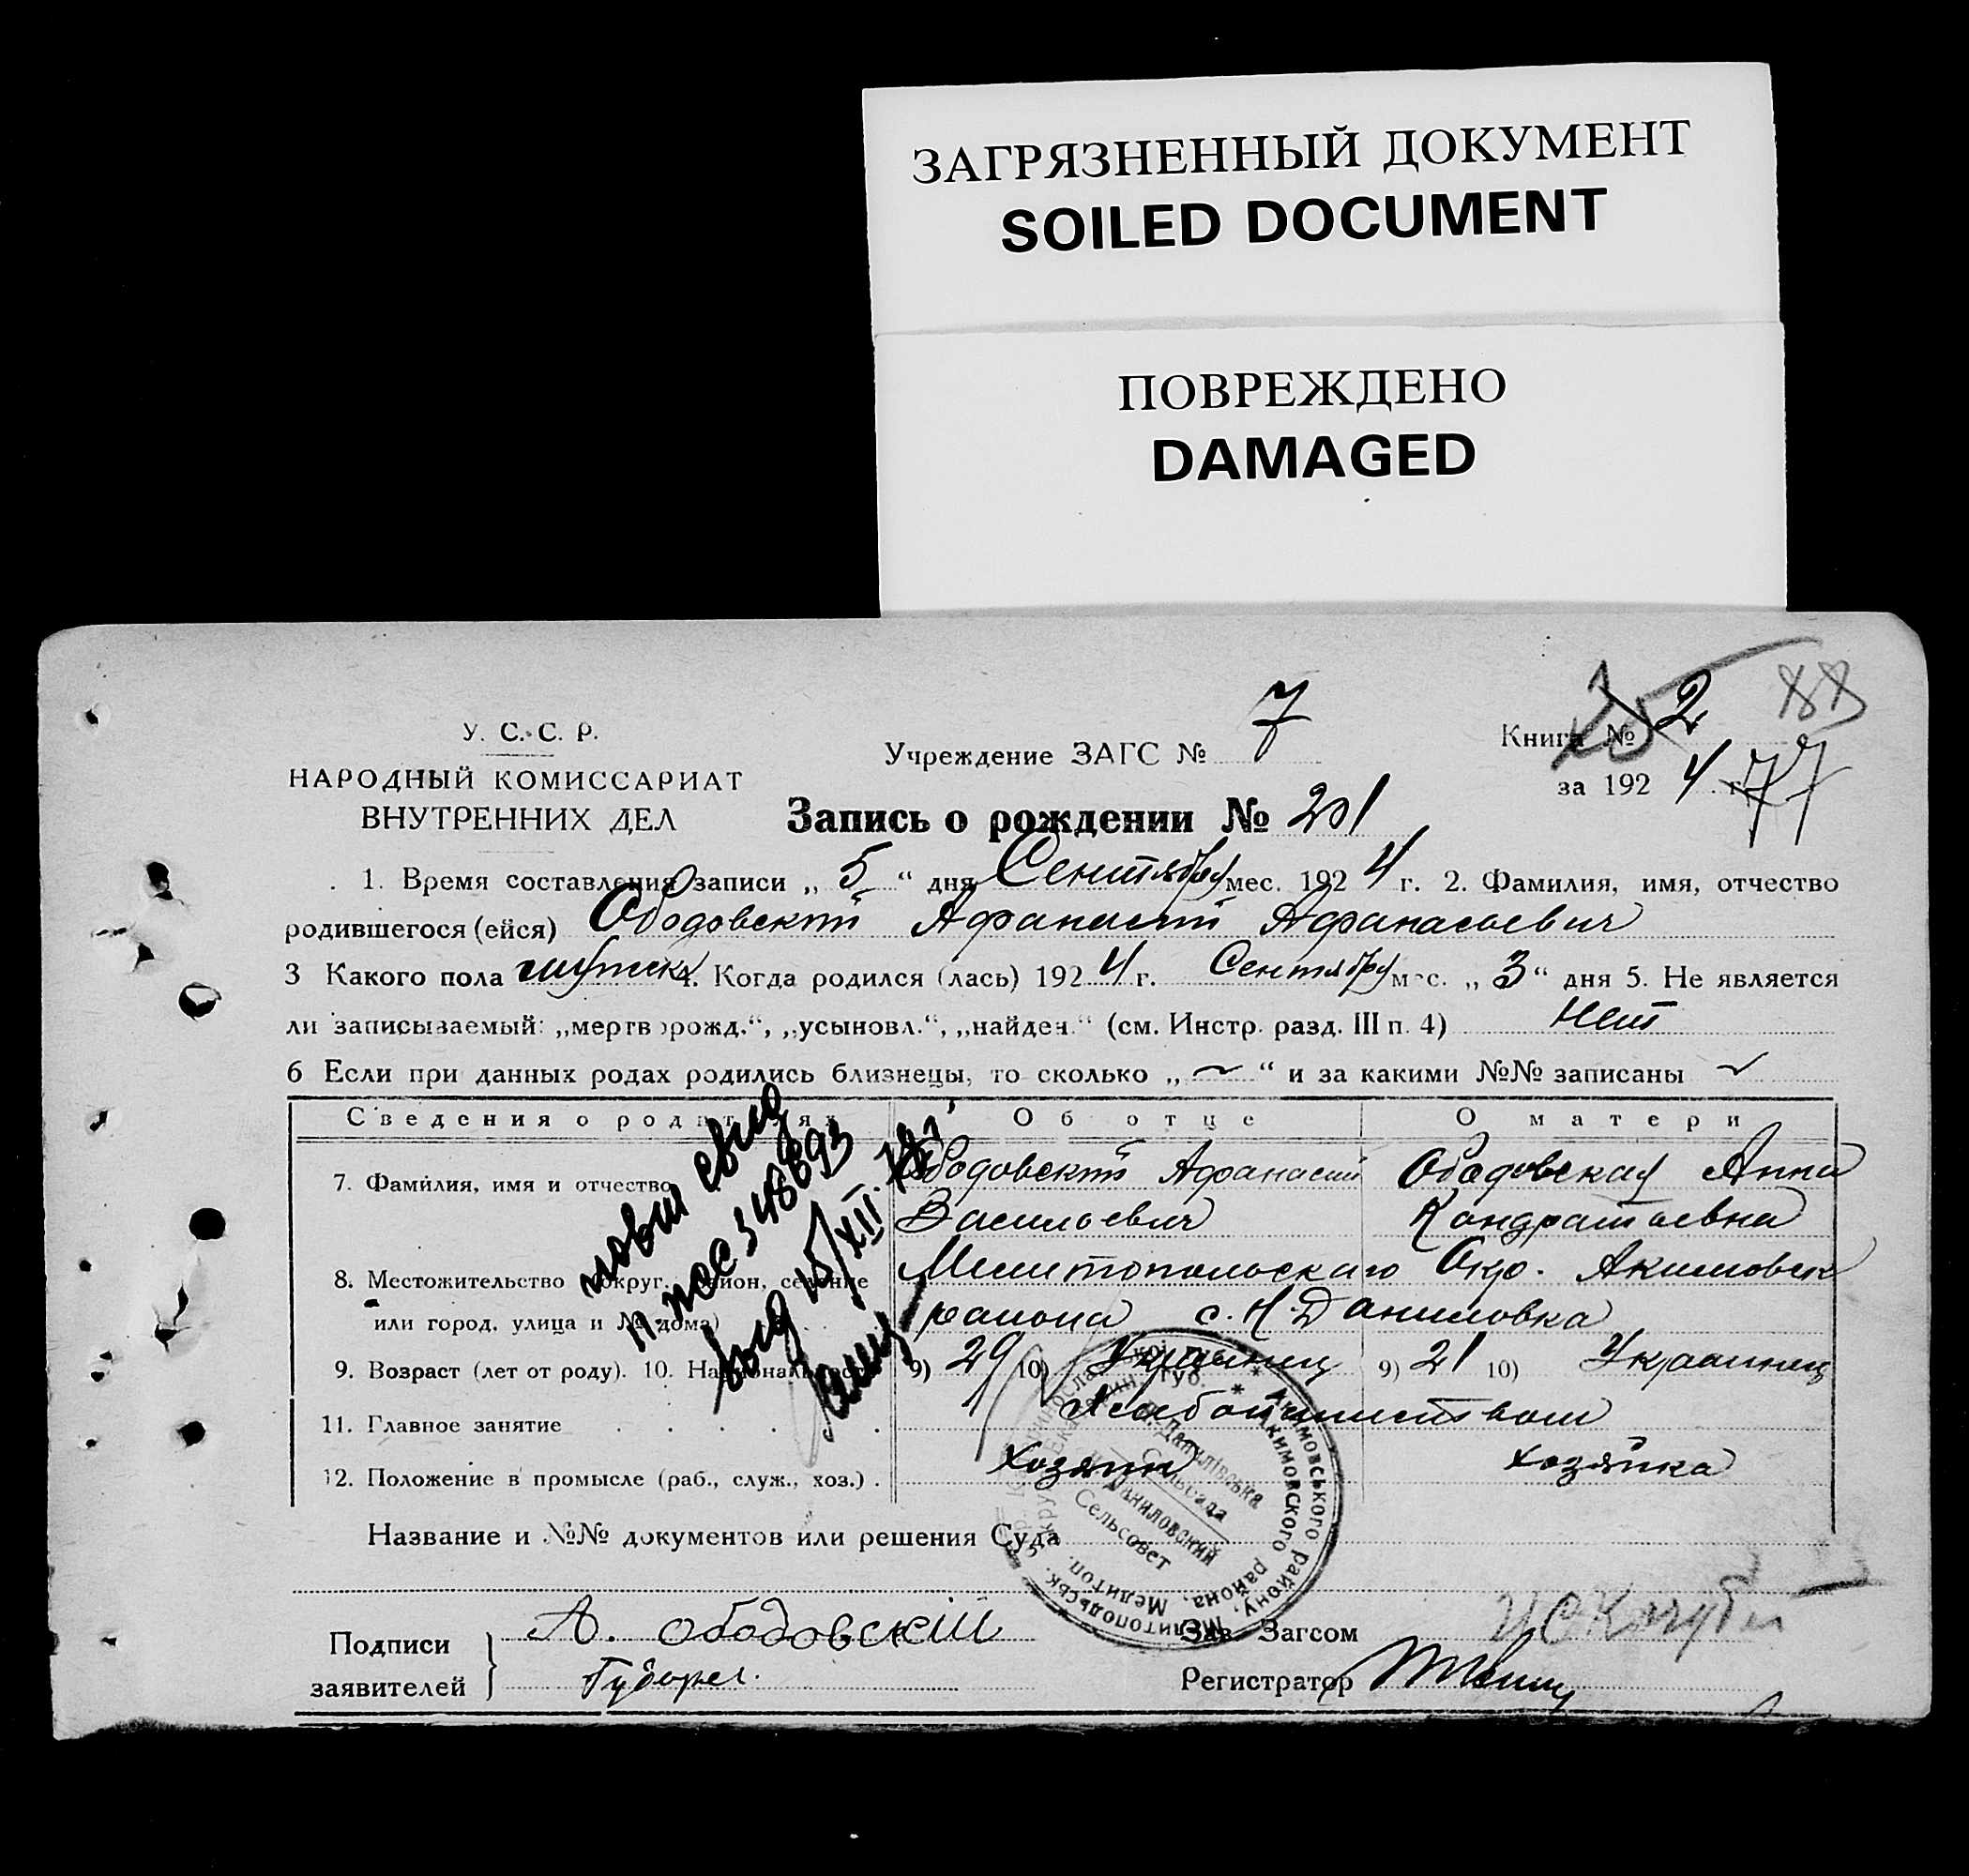 ЗАГРЯЗНЕННЫЙ ДОКУМЕНТ
SOILED DOCUMENT
ПОВРЕЖДЕНО
DAMAGED
88
У. С. С. Р.
НАРОДНЫЙ КОМИССАРИАТ
ВНУТРЕННИХ ДЕЛ
Учреждение ЗАГС № 7
Книга № 2
за 1924 г.
77
Запись о рождении № 201
1. Время составления записи „5“ дня Сентября мес. 1924 г. 2. Фамилия, имя, отчество
родившегося (ейся) Ободовский Афанасий Афанасьевич
3 Какого пола мужск 4. Когда родился (лась) 1924 г. Сентября мес. „3“ дня 5. Не является
ли записываемый: „мертворожд.“, „усыновл.“, „найден.“ (см. Инстр. разд. III п. 4) Нет
6 Если при данных родах родились близнецы, то сколько „~“ и за какими №№ записаны
Сведения о родителях Об отце О матери
7. Фамилия, имя и отчество Ободовский Афанасий Васильевич Ободовская Анна Кондратьевна
8. Местожительство (округ, район, селение Мелитопольского Окр. Акимовск
или город, улица и № дома) района с. Н. Даниловка
9. Возраст (лет от роду). 10. Национальность 9) 29 10) Украинец 9) 21 10) Украинец
11. Главное занятие Хлебопашеством
12. Положение в промысле (раб., служ., хоз.) Хозяин Хозяйка
Название и №№ документов или решения Суда
Подписи заявителей
А. Ободовскій
Зав. Загсом
Регистратор
348893
15/XII
Акимовського району, Мелітопольськ.
Акимовского района, Мелитоп.
Н. Данилівська
Сільрада
Н. Даниловский
Сельсовет